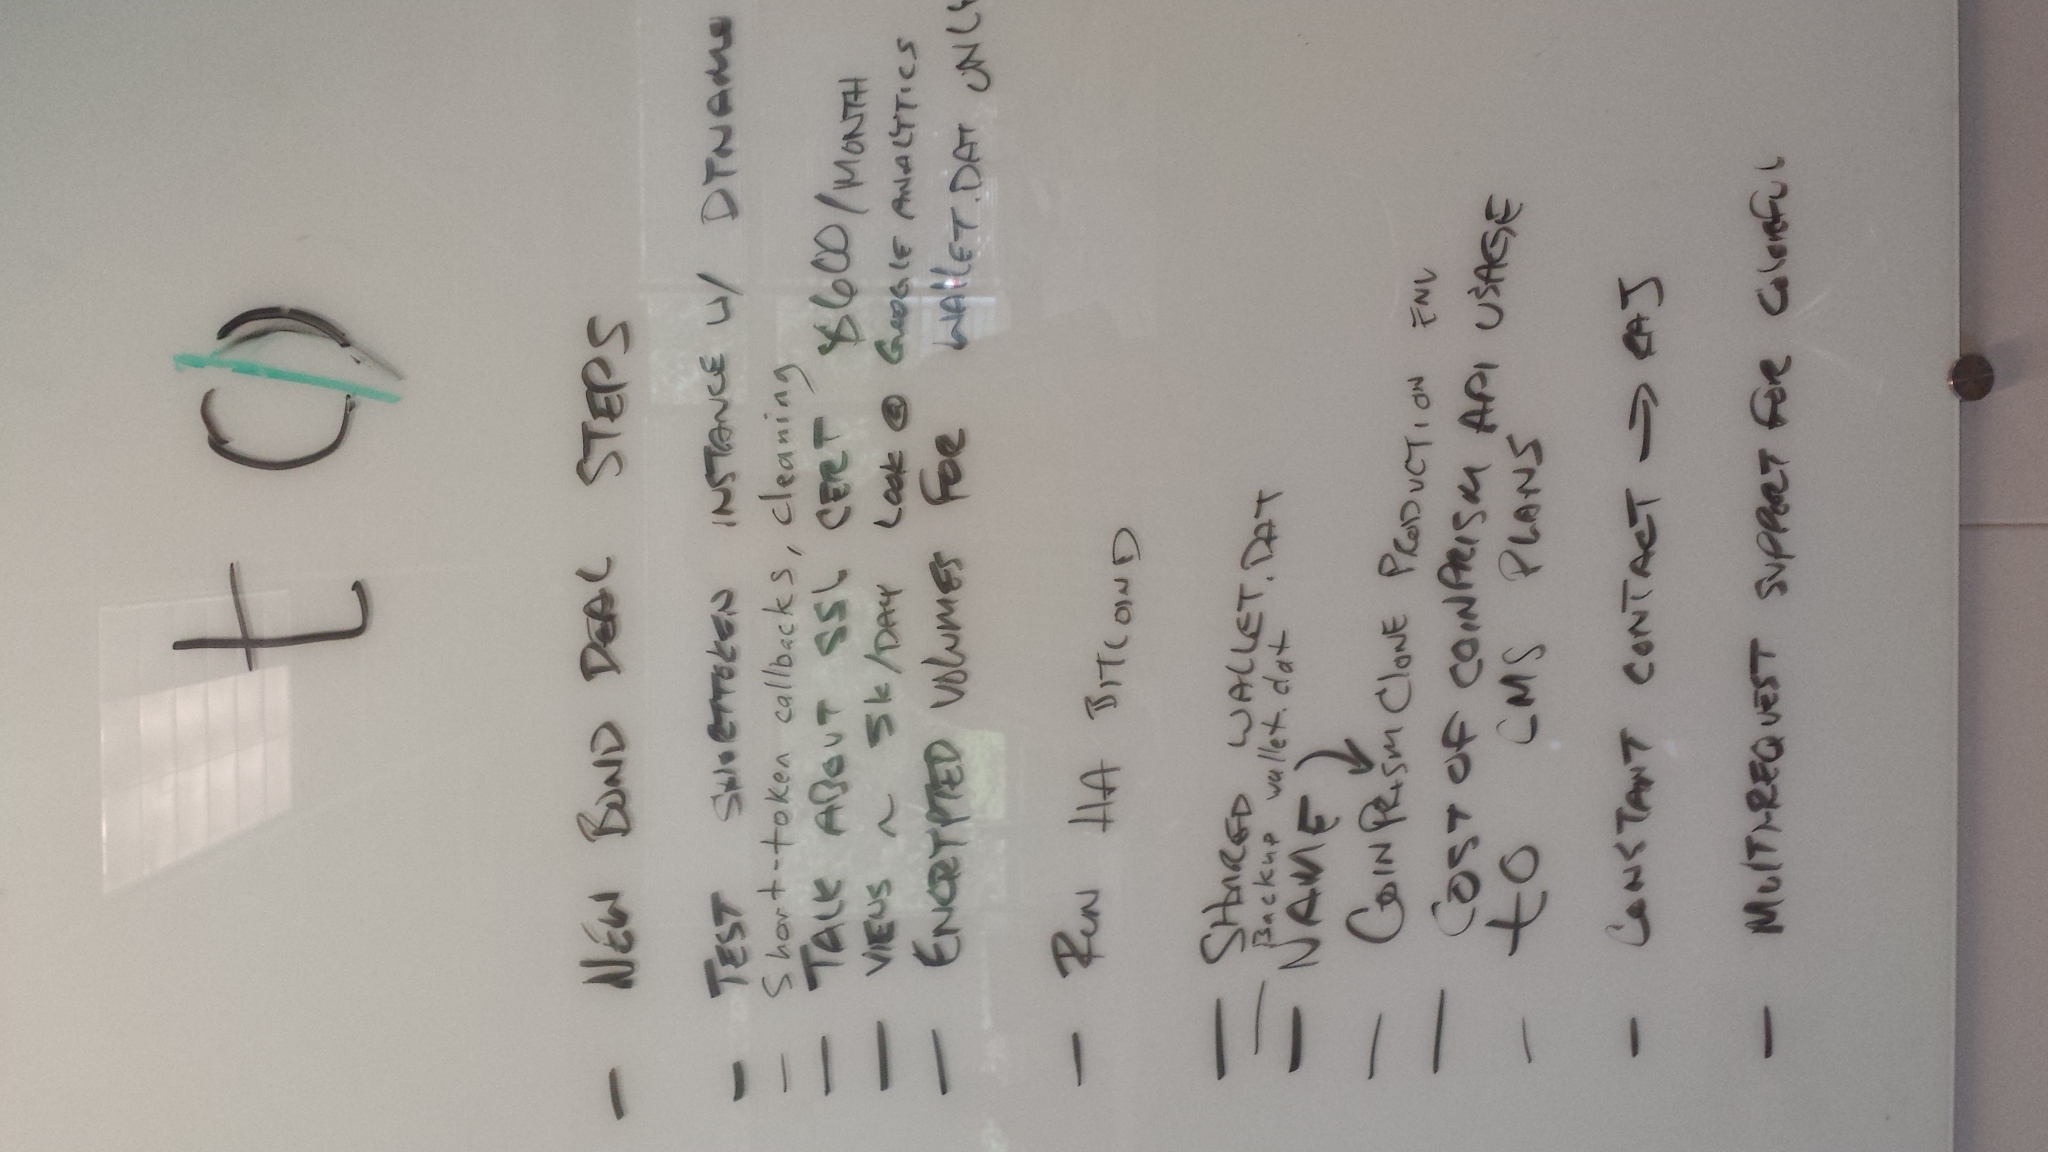 tO
- NEW BOND DEAL STEPS
- TEST SHORTTOKEN INSTANCE W/ DTNAME
- Short-token callbacks, cleaning
- TALK ABOUT SSL CERT $600/MONTH
- VIEWS ~ 5K/DAY LOOK @ GOOGLE ANALYTICS
- ENCRYPTED VOLUMES FOR WALLET.DAT ONLY
- RUN HA BITCOIND
- SHARED WALLET.DAT
- Backup wallet.dat
- NAME
- COINPRISM CLONE PRODUCTION ENV
- COST OF COINPRISM API USAGE
- tO CMS PLANS
- CONSTANT CONTACT → RAJ
- MULTI-REQUEST SUPPORT FOR COLORFUL